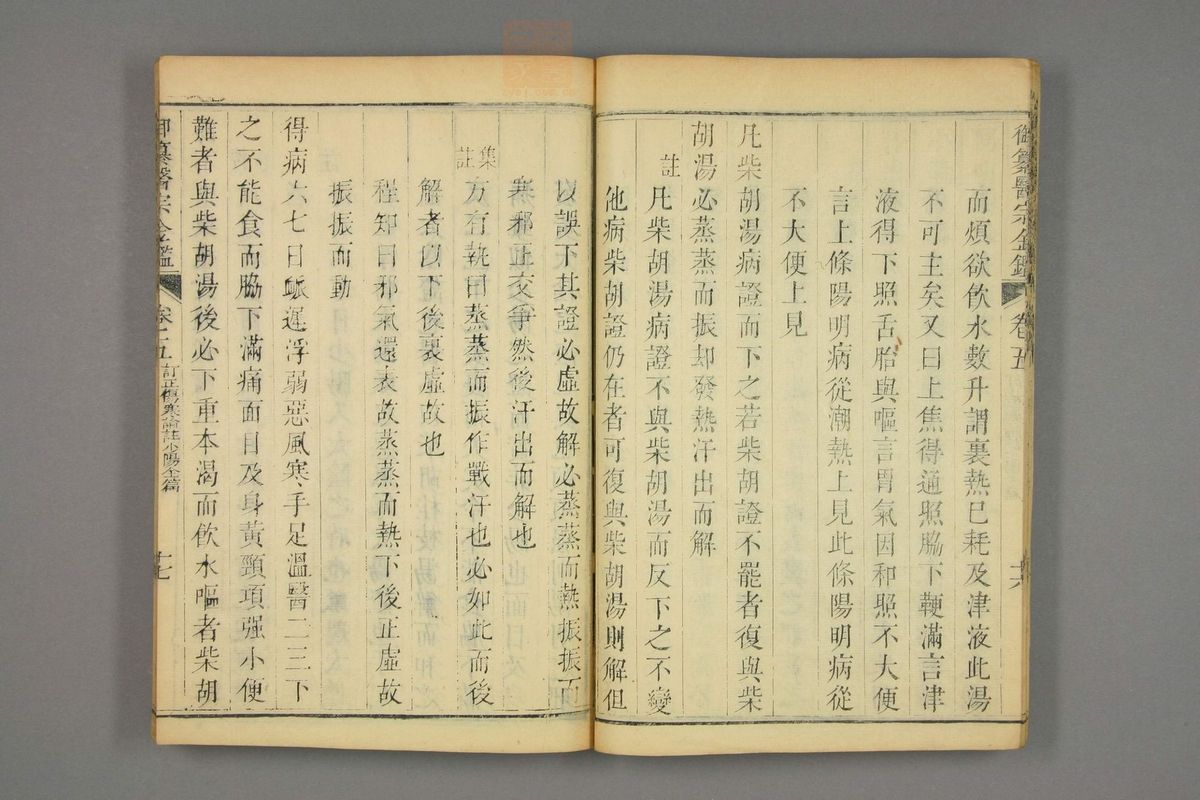 御纂醫宗金鑑 卷五 十六
而煩欲飲水數升謂裏熱已耗及津液此湯
不可主矣又曰上焦得通照脇下鞕滿言津
液得下照舌胎與嘔言胃氣因和照不大便
言上條陽明病從潮熱上見此條陽明病從
不大便上見
凡柴胡湯病證而下之若柴胡證不罷者復與柴
胡湯必蒸蒸而振却發熱汗出而解
註
凡柴胡湯病證不與柴胡湯而反下之不變
他病柴胡證仍在者可復與柴胡湯則解但
以誤下其證必虛故解必蒸蒸而熱振振而
寒邪正交爭然後汗出而解也
集註
方有執曰蒸蒸而振作戰汗也必如此而後
解者以下後裏虛故也
程知曰邪氣還表故蒸蒸而熱下後正虛故
振振而動
得病六七日䘑遲浮弱惡風寒手足溫醫二三下
之不能食而脇下滿痛面目及身黃頸項强小便
難者與柴胡湯後必下重本渴而飲水嘔者柴胡
御纂醫宗金鑑 卷之五 訂正傷寒論註少陽全篇 十七